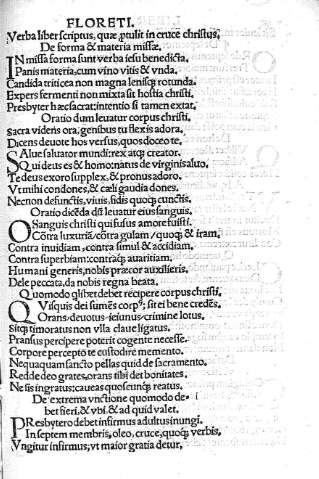 FLORETI.
Verba liber scriptus, quæ ꝓtulit in cruce christus,
De forma & materia missæ.
IN missa forma sunt verba iesu benedicta,
Panis materia; cum vino vitis & vnda.
Candida triticea non magna leuisq; rotunda.
Expers fermenti non mixta sit hostia christi,
Presbyter hæc sacrat; intentio si tamen extat.
Oratio dum leuatur corpus christi,
Sacra videns ora, genibus tu flexis adora.
Dicens deuote hos versus, quos doceo te,
SAlue saluator mundi: rex atq; creator.
Qui deus es & homo natus de virginis aluo,
Te deus exoro supplex, & pronus adoro.
Vt mihi condones, & cæli gaudia dones.
Necnon defunctis, viuis, fidis quoq; cunctis.
Oratio dicẽda dũ leuatur eius sanguis.
OSanguis christi qui fusus amore fuisti.
Cõtra luxuriã/cõtra gulam/quoq; & iram.
Contra inuidiam, contra simul & accidiam.
Contra superbiam: contraq; auaritiam.
Humani generis, nobis præcor auxilieris.
Dele peccata, da nobis regna beata.
Quomodo q̃libet debet recipere corpus christi.
QVisquis dei sumẽs corpꝰ; sit ei bene credẽs.
Orans, deuotus, ieiunus, crimine lotus.
Sitq; timoratus non vlla claue ligatus.
Pransus percipere poterit cogente necesse.
Corpore percepto te custodire memento.
Nequaquam sancto pellas quid de sacramento.
Redde deo grates, orans tibi det bonitates.
Ne sis ingratus; caueas quoscunq; reatus.
De extrema vnctione quomodo de-
bet fieri, & vbi, & ad quid valet.
PResbytero debet infirmus adultus inungi.
In septem membris, oleo, cruce, quoq; verbis,
Vngitur infirmus, vt maior gratia detur,